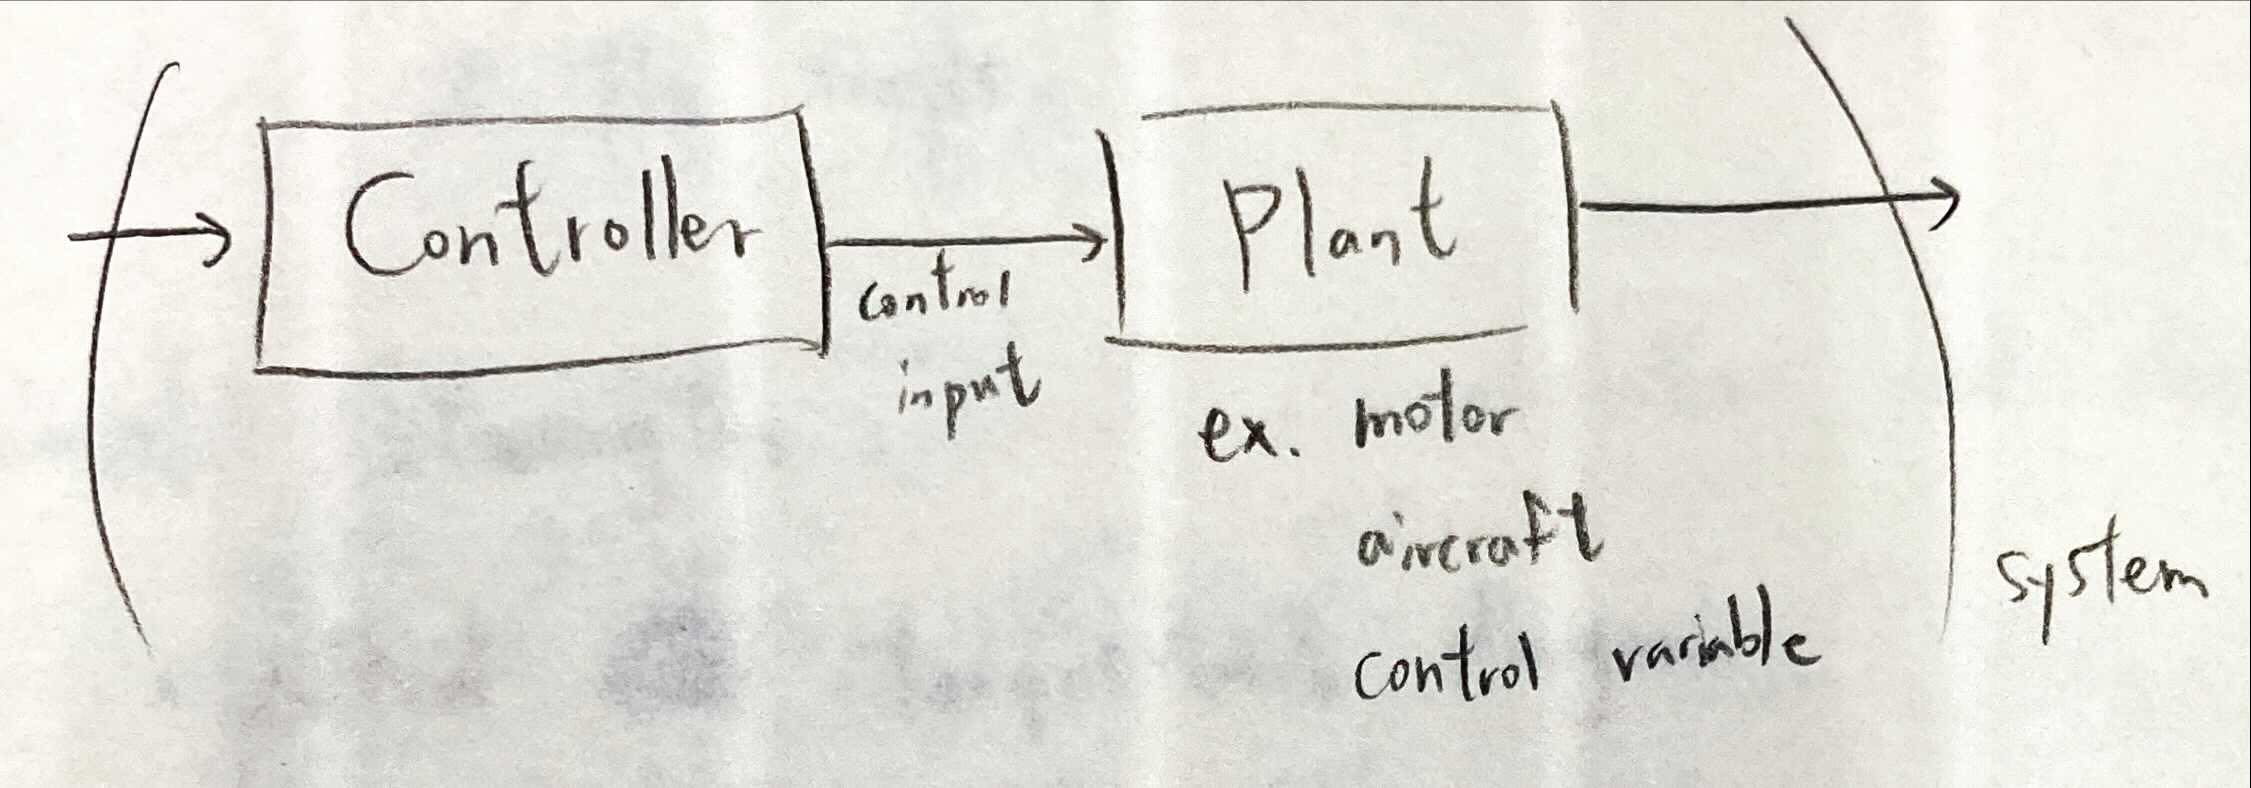 Controller
Plant
control
input
ex. motor
aircraft
control variable
system